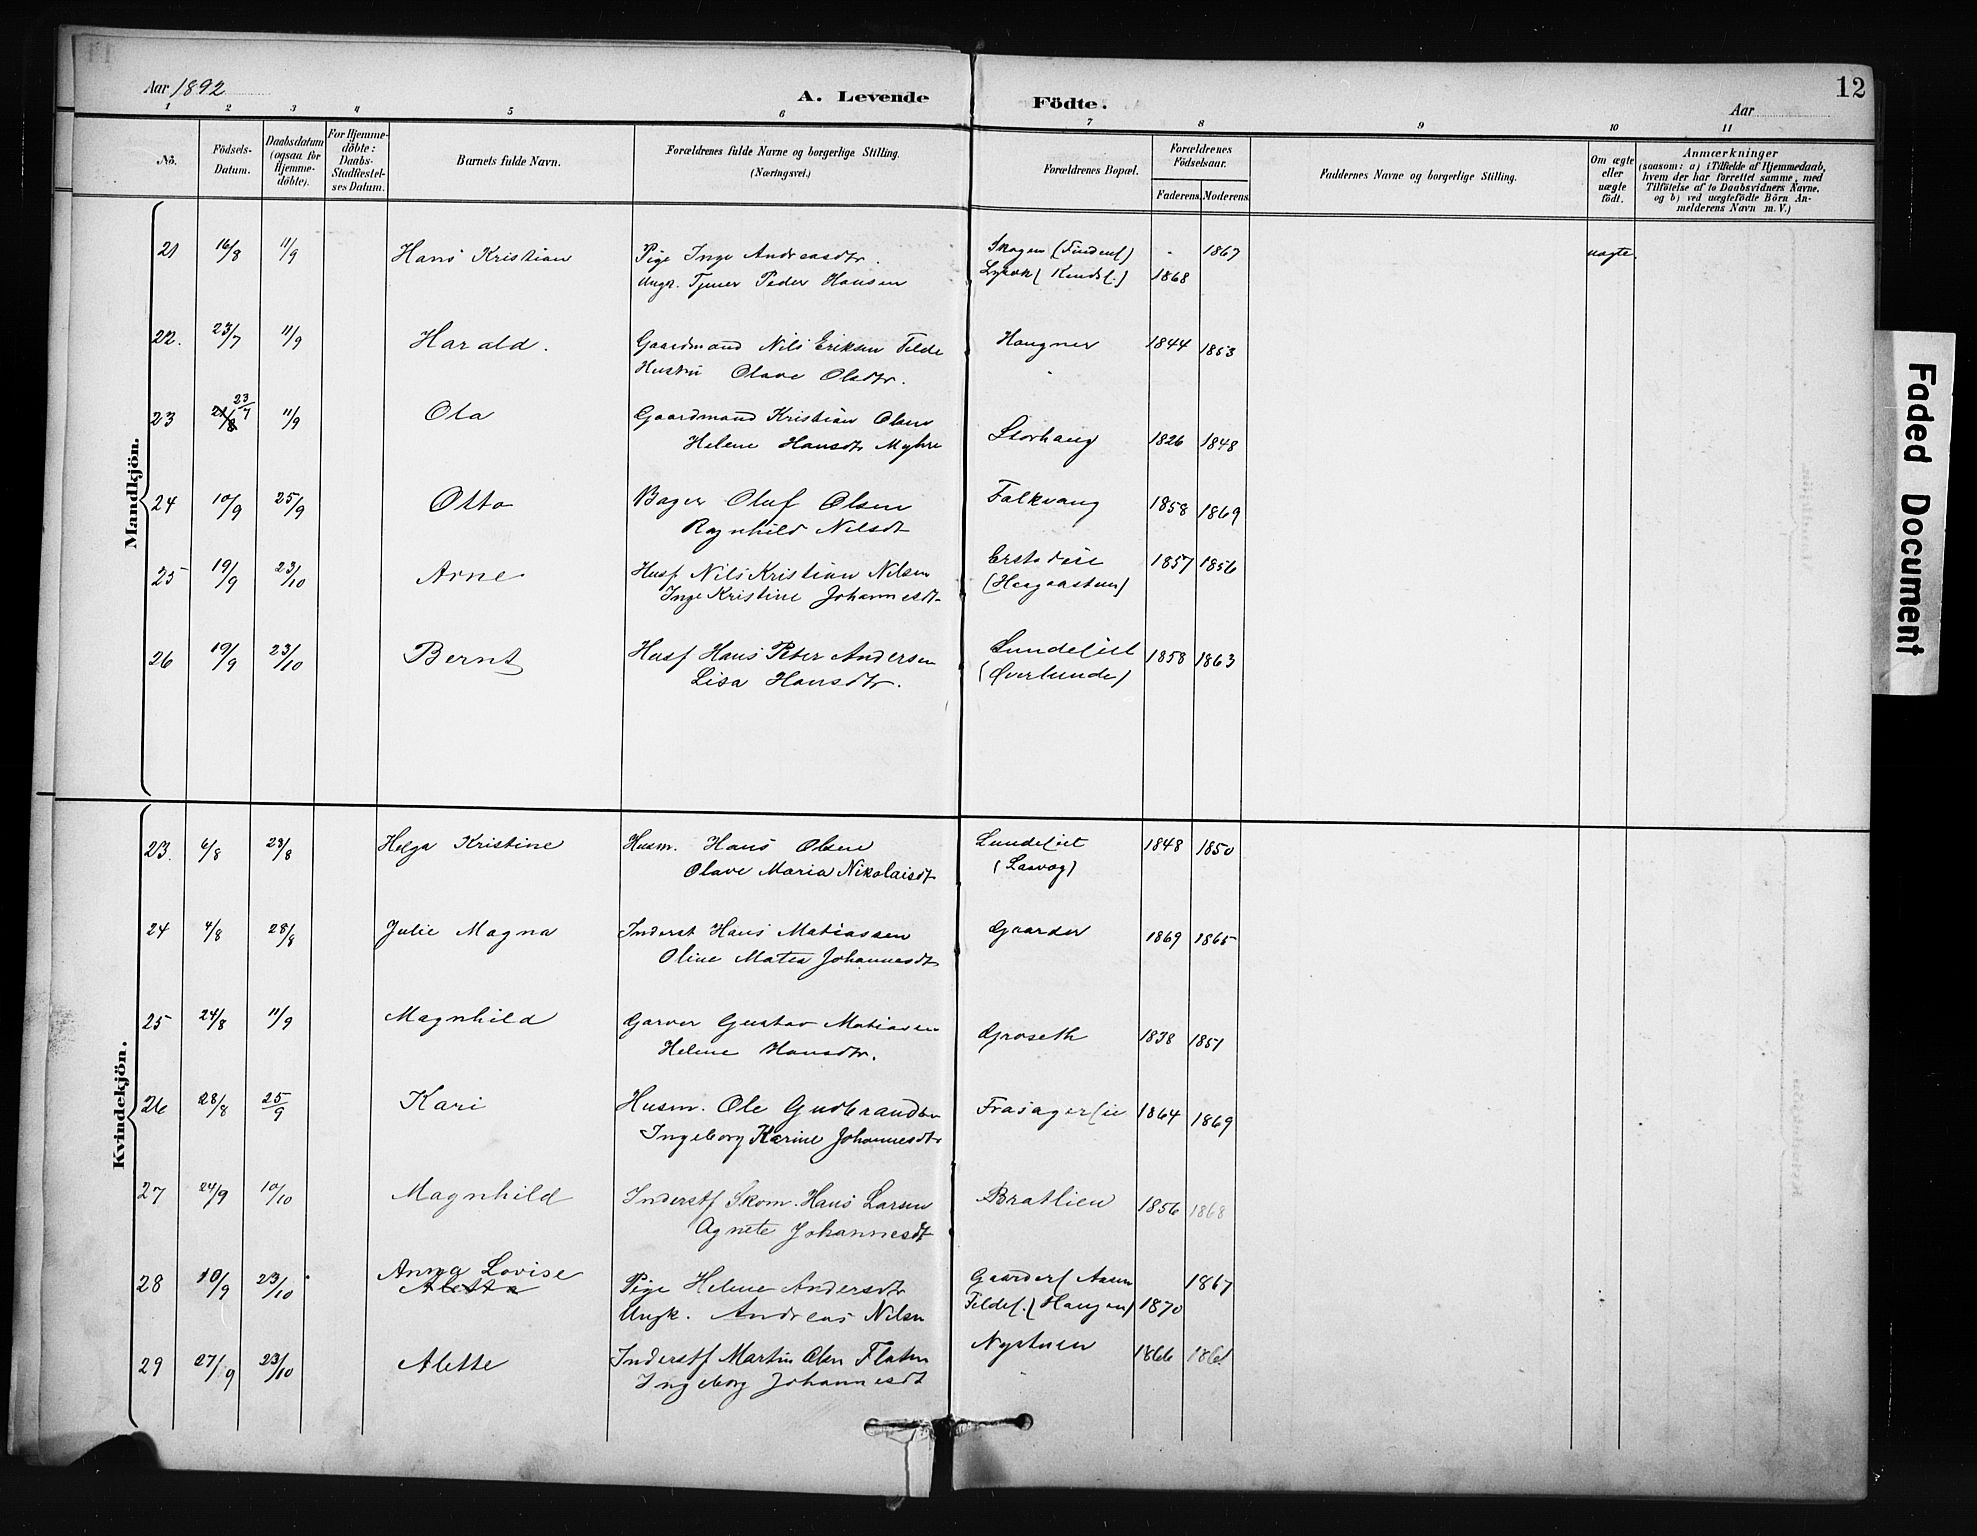 Aar 1892
A. Levende Födte.
Aar
12
1 2 3 4 5 6 7 8 9 10 11
No.
Födsels-Datum.
Daabsdatum (ogsaa for Hjemme-döbte).
For Hjemme-döbte: Daabs-Stadfæstel-ses Datum.
Barnets fulde Navn.
Forældrenes fulde Navne og borgerlige Stilling. (Næringsvei.)
Forældrenes Bopæl.
Forældrenes Födselsaar.
Faderens. Moderens.
Faddernes Navne og borgerlige Stilling.
Om ægte eller uægte födt.
Anmærkninger
(saasom: a) i Tilfælde af Hjemmedaab, hvem der har forrettet samme, med Tilföielse af to Daabsvidners Navne. og b) ved uægtefödte Börn An-melderens Navn m. V.)
Mandkjön.
21 16/8 11/9 Hans Kristian Pige Inge Andreasdtr. Skogen - 1867 uægte.
Ungk. Tjener Peder Hansen 1868
22. 23/7 11/9 Harald. Gaardmand Nils Eriksen Felde Haugner 1844 1853
Hustru Olave Olsdtr.
23 21/8 23/7 11/9 Ola Gaardmand Kristian Olsen
Helene Hansdtr Myhre Storhaug 1826 1848
24 10/9 25/9 Otto Bager Oluf Olsen Falkvang 1858 1869
Ragnhild Nilsdt
25 19/9 23/10 Arne Husf Nils Kristian Nilsen 1857 1856
Inge Kristine Johannesdt
26 19/9 23/10 Bernt Husf Hans Peter Andersen Lundeeiet 1858 1863
Lisa Hansdtr. (Øverlunde)
Kvindekjön.
23. 6/8 28/8 Helga Kristine Husm. Hans Olsen Lundeeiet 1848 1850
Olave Maria Nikolaisdt
24 4/8 28/8 Julie Magna Inderst Hans Matiassen Gaarder 1869 1865
Oline Matea Johannesdt
25 24/8 11/9 Magnhild Garver Gustav Matiasen Groseth 1838 1851
Helene Hansdtr.
26 28/8 25/9 Kari Husm. Ole Gudbrandsen 1864 1869
Ingeborg Karine Johannesdtr
27 24/9 10/10 Magnhild Inderstf Skom. Hans Larsen Bratlien 1856 1868
Agnete Johannesdt
28 10/9 23/10 Anna Lovise
Aletta Pige Helene Andersdtr 1867
Ungk. Andreas Nilsen (Haugen) 1870
29 27/9 23/10 Alette Inderstf Martin Olsen Flaten Nystuen 1866 1861
Ingeborg Johannesdt
Faded Document